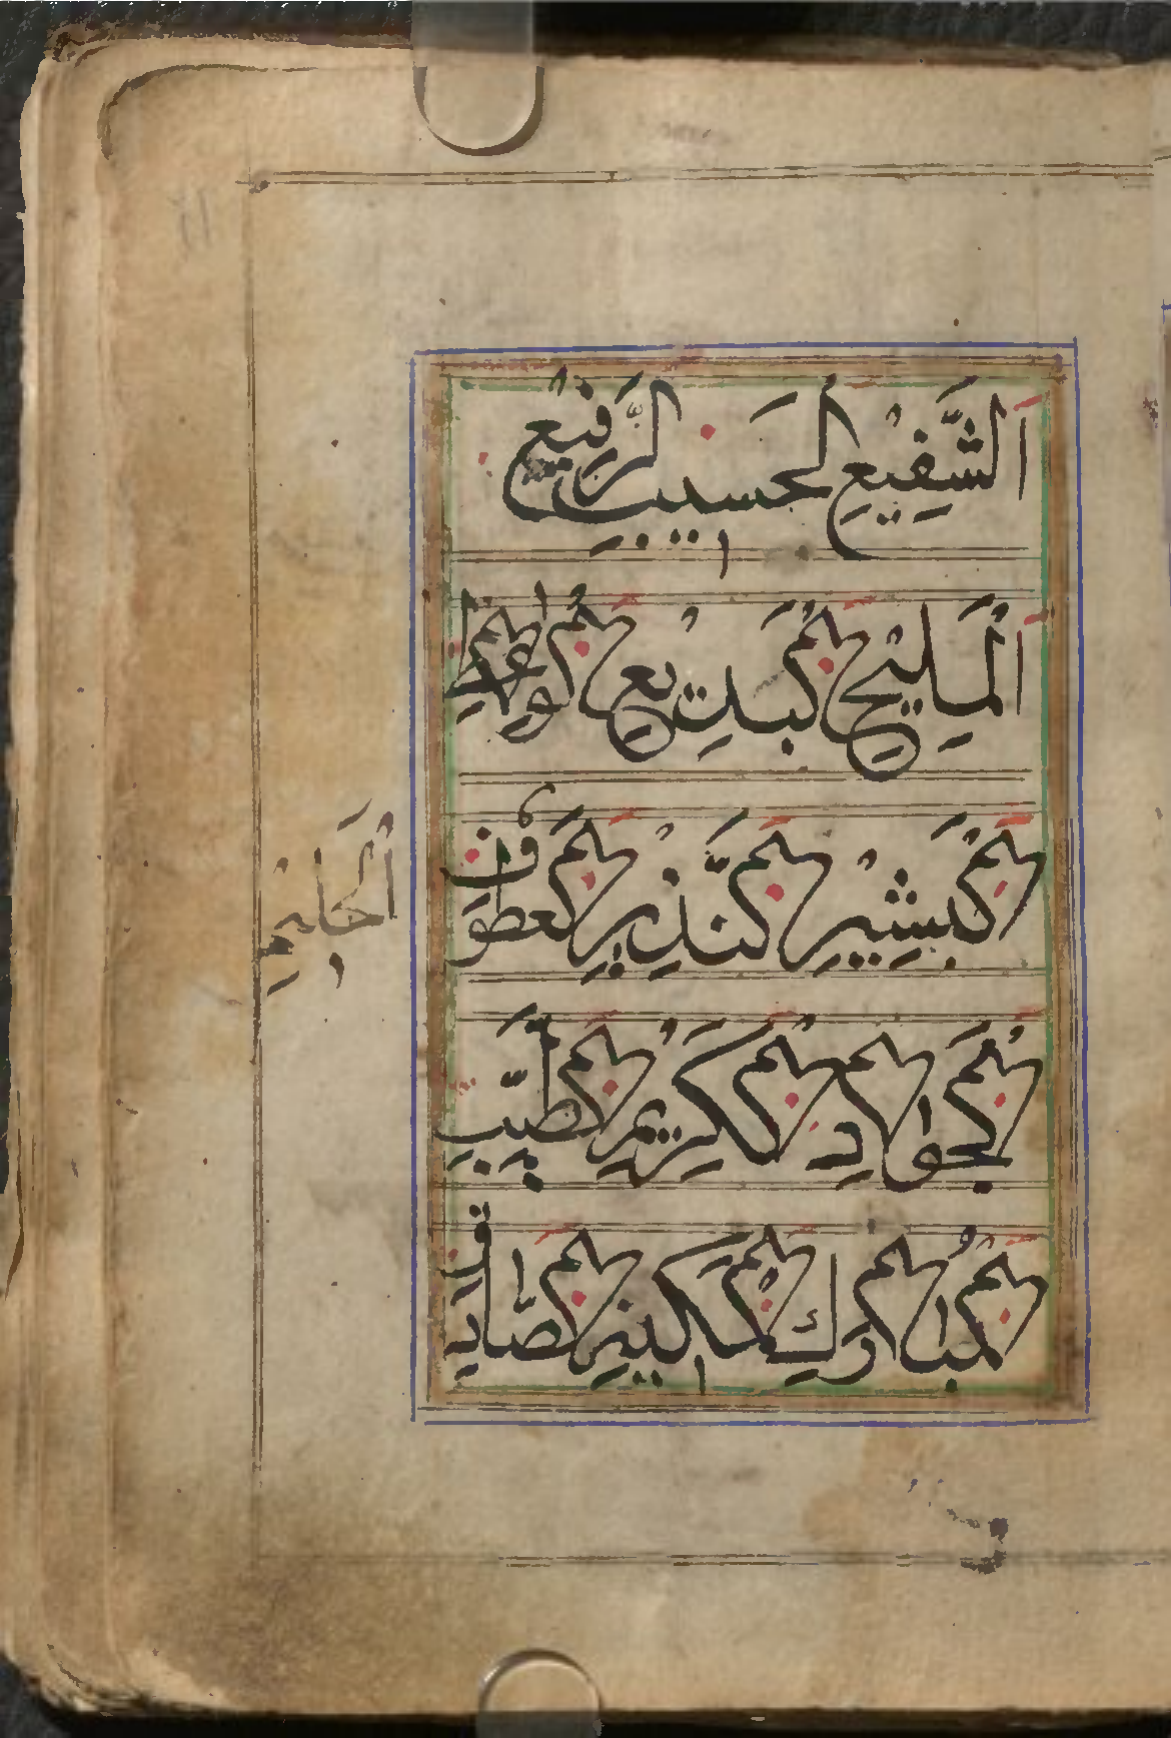 اَلشَّفِيْعِ الْحَسِيْبِ الرَّفِيْعِ
اَلْمَلِيْحِ الْبَدِيْعِ الْوَاعِظِ
الْبَشِيْرِ النَّذِيْرِ الْعَطُوْفِ
اَلْحَلِيْمِ
الْجَوَادِ الْكَرِيْمِ الطَّيِّبِ
الْمُبَارَكِ الْمَكِيْنِ الصَّادِقِ